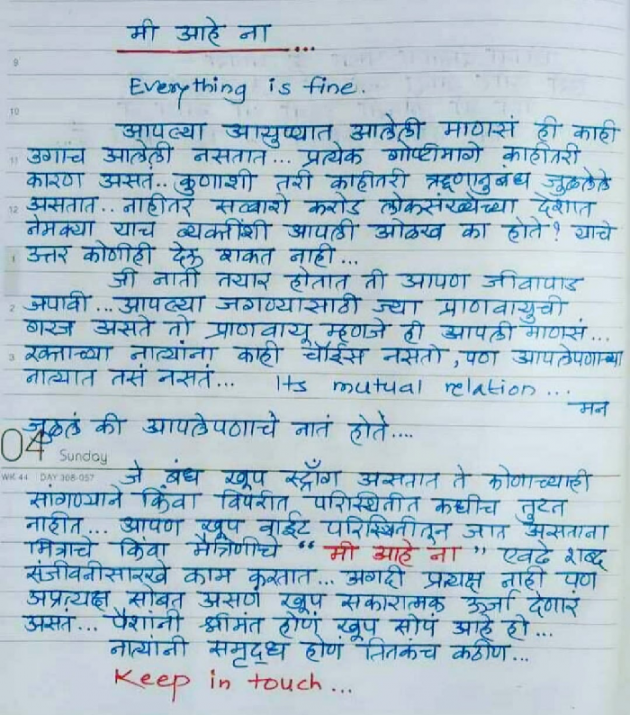 मी आहे ना
....
9
Everything is fine.
10
आपल्या आयुष्यात आलेली माणसं ही काही
11 उगाच आलेली नसतात... प्रत्येक गोष्टीमागे काहीतरी
कारण असतं.. कुणाशी तरी काहीतरी ऋणानुबंध जुळलेले
12 असतात.. नाहीतर सव्वाशे करोड लोकसंख्येच्या देशात
नेमक्या याच व्यक्तींशी आपली ओळख का होते? याचे
1 उत्तर कोणीही देऊ शकत नाही...
जी नाती तयार होतात ती आपण जीवापाड
2 जपावी...आपल्या जगण्यासाठी ज्या प्राणवायुची
गरज असते तो प्राणवायू म्हणजे ही आपली माणसं...
3 रक्ताच्या नात्यांना काही चॉईस नसतो, पण आपलेपणाच्या
नात्यात तसं नसतं... Its mutual relation...
मन
जुळलं की आपलेपणाचे नातं होते....
04 Sunday
WK 44 DAY 308-057
जे बंध खूप स्ट्राँग असतात ते कोणाच्याही
सांगण्याने किंवा विपरीत परिस्थितीत कधीच तुटत
नाहीत... आपण खूप वाईट परिस्थितीतून जात असताना
मित्राचे किंवा मैत्रीणीचे "मी आहे ना" एवढे शब्द
संजीवनीसारखे काम करतात... अगदी प्रत्यक्ष नाही पण
अप्रत्यक्ष सोबत असणं खूप सकारात्मक ऊर्जा देणारं
असतं... पैशांनी श्रीमंत होणं खूप सोपं आहे हो...
नात्यांनी समृद्ध होणं तितकंच कठीण...
Keep in touch...